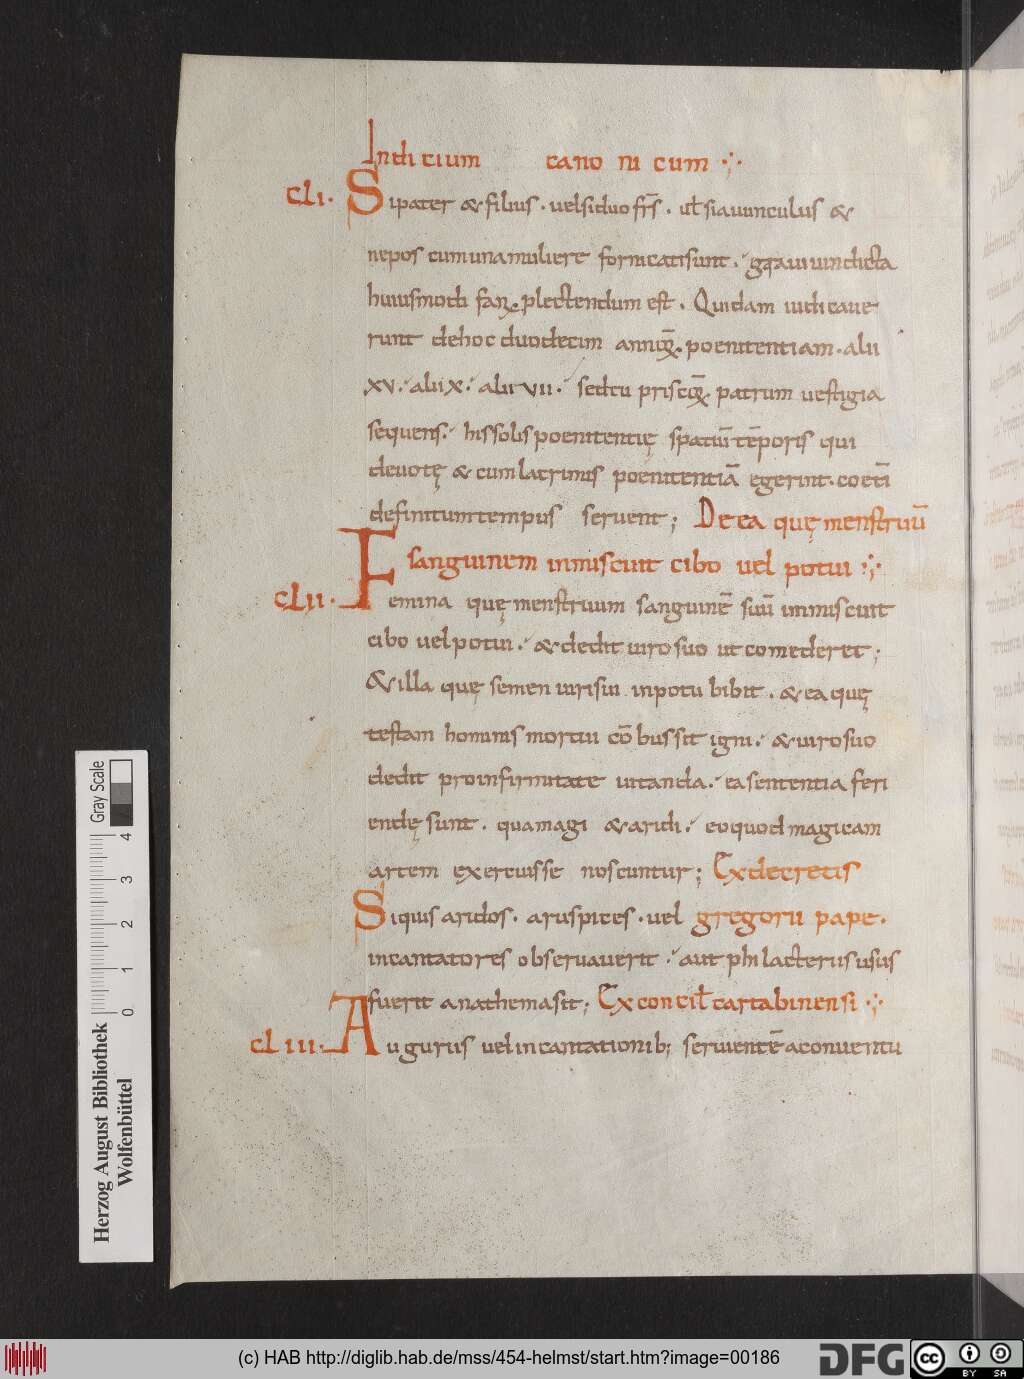 Indicium canonicum
CLI. Si pater & filius. vel si duo fr̄s. ul̄ si avunculus &
nepos cum una muliere fornicati sunt. graui uindicta
huiusmodi plectendum est. Quidam iudicaue
runt de hoc duodecim annoꝝ. poenitentiam. alii
XV. alii X. alii VII. sed tu priscoꝝ patrum uestigia
sequens. his solis poenitentię spatiū tēporis qui
deuotę & cum lacrimis poenitentiā egerint. coetī
definitum tempus seruent; De ea quę menstruū
sanguinem inmiscuit cibo vel potui
CLII. Femina quę menstruum sanguinē suū inmiscuit
cibo uel potui. & dedit uiro suo ut comederet;
& illa quę semen uiri sui in potu bibit. & ea quę
testam hominis mortui cōbussit igni. & uiro suo
dedit pro infirmitate uitanda. ea sententia feri
endę sunt. qua magi & arioli. eo quod magicam
artem exercuisse noscuntur; Ex decretis
Siquis ariolos. aruspices. uel gregorii pape.
incantatores obseruauerit. aut philacteriis usus
fuerit anathema sit; Ex concil̄ cartabinensi
CLIII. Auguriis uel incantationib; seruientē a conuentu
Herzog August Bibliothek
Wolfenbüttel
0 1 2 3 4
Gray Scale
(c) HAB http://diglib.hab.de/mss/454-helmst/start.htm?image=00186
DFG
cc BY SA